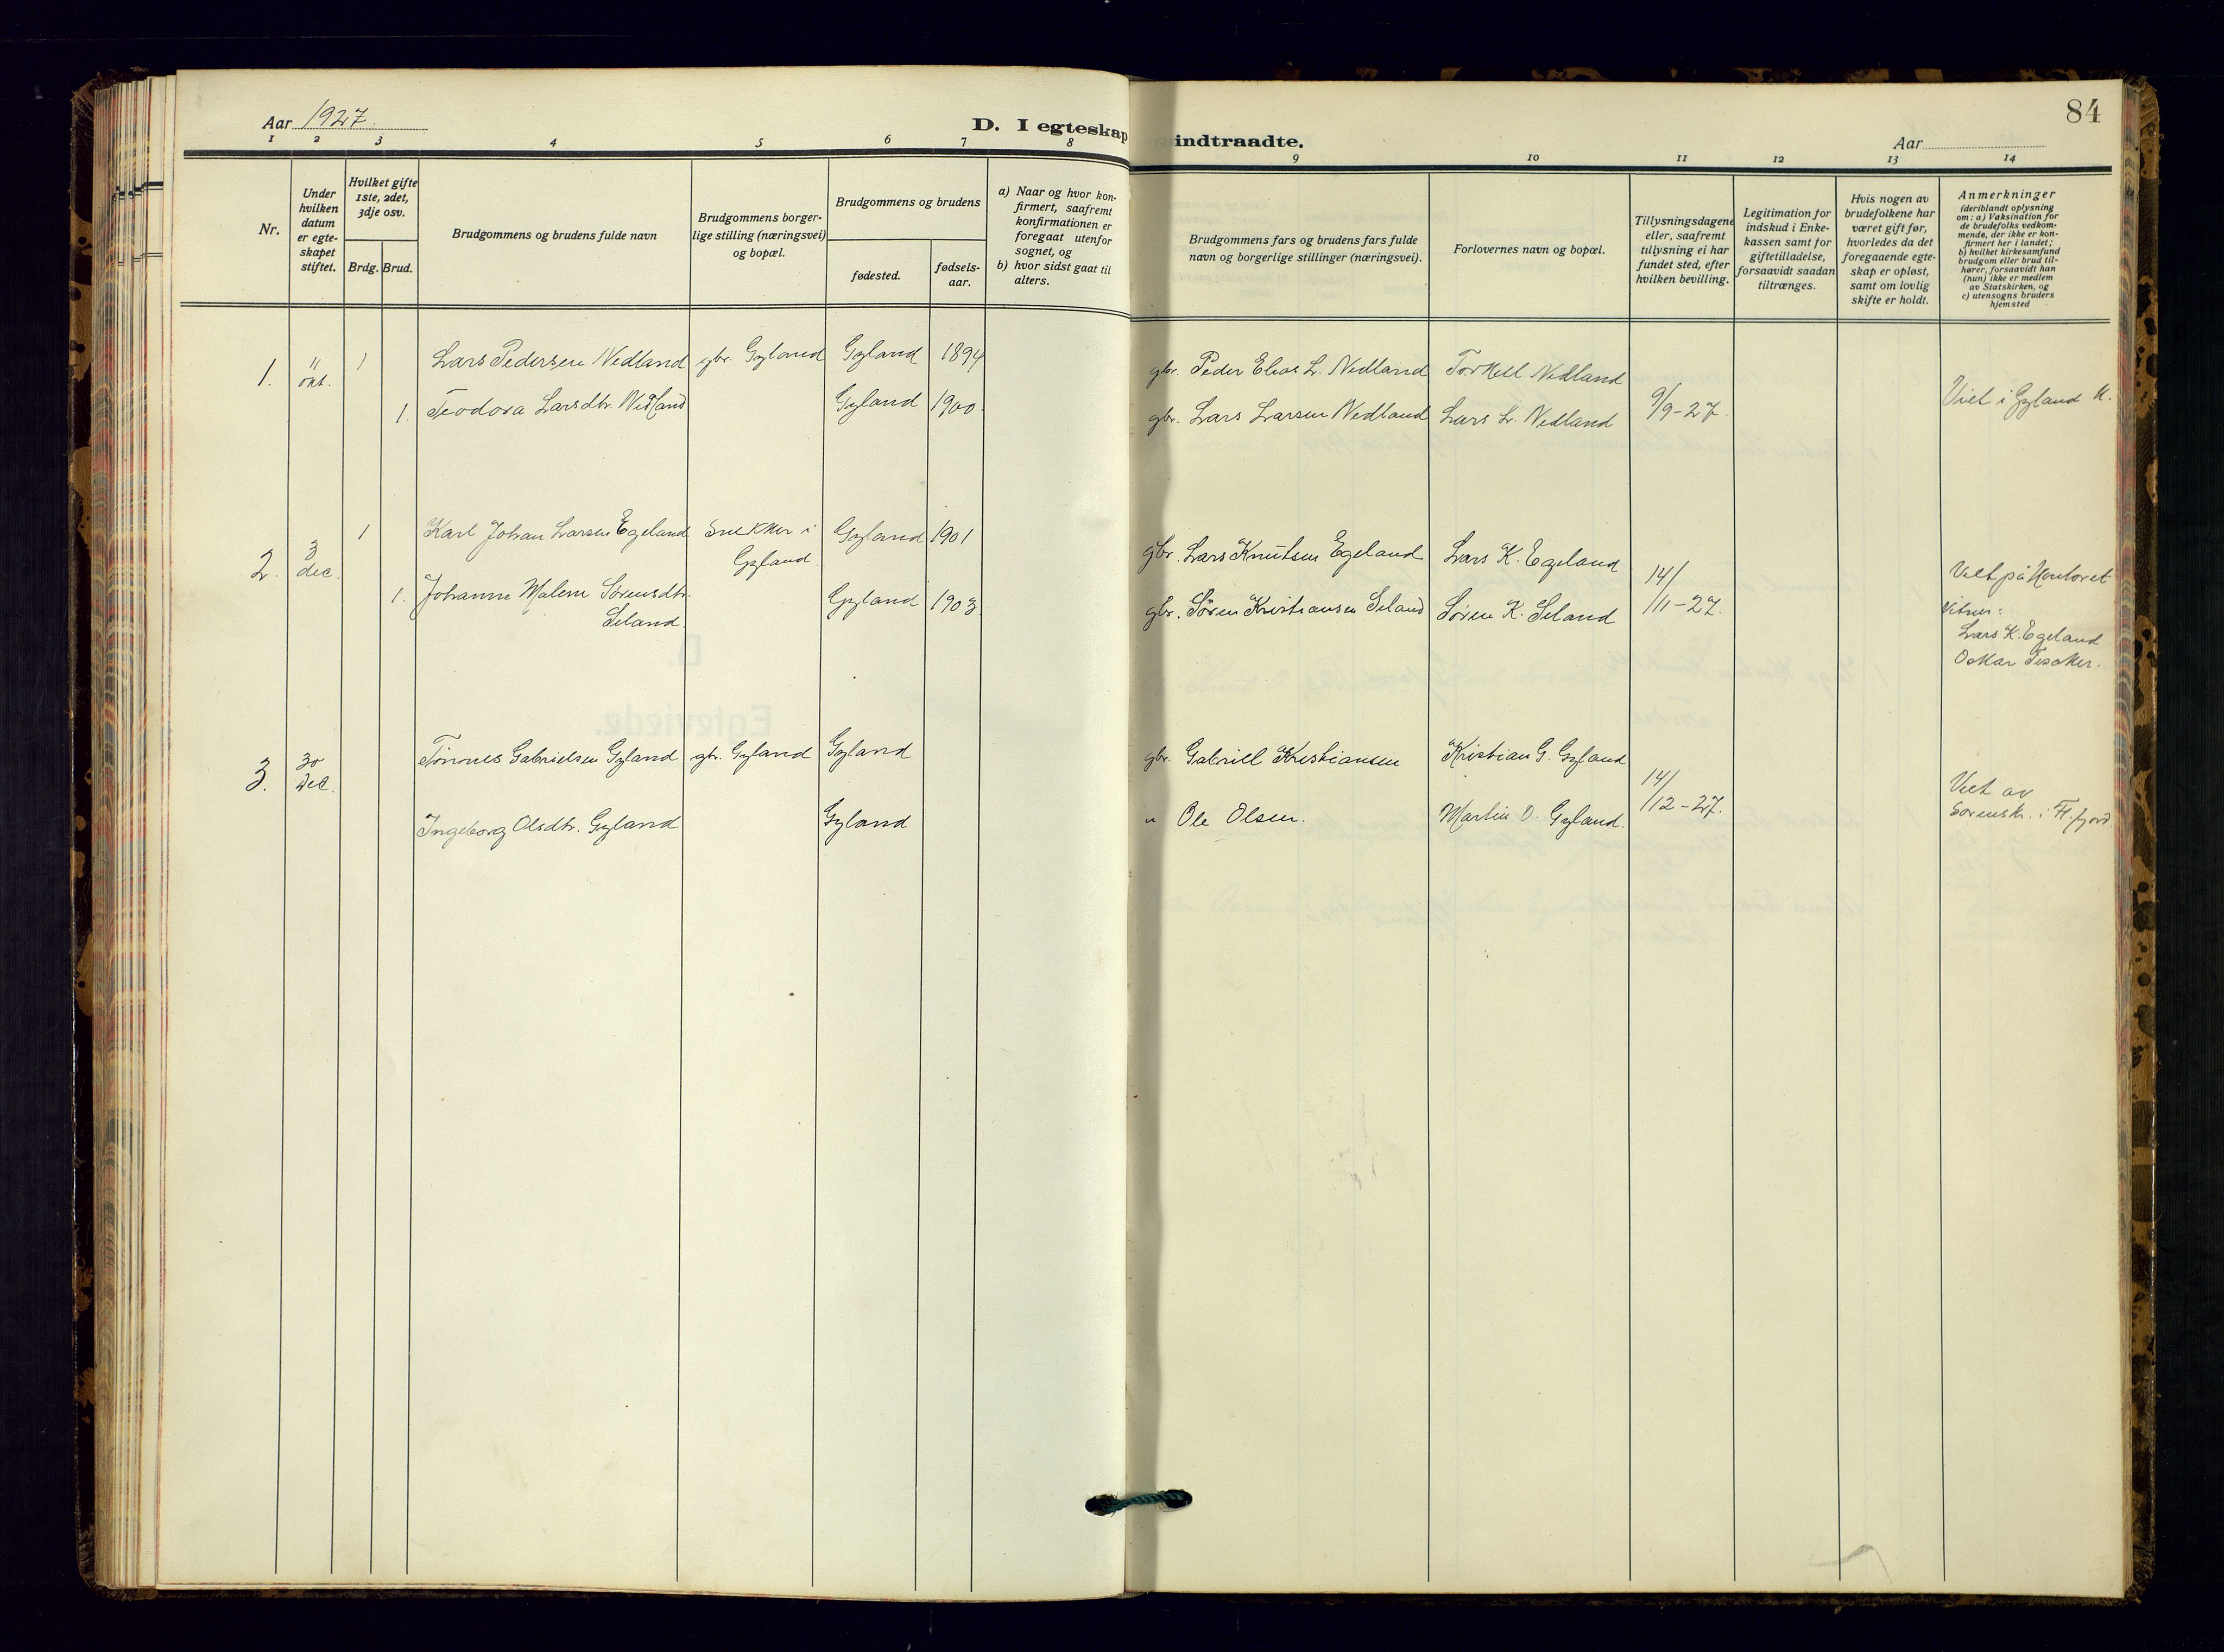 Aar 1927.
D. I egteskap indtraadte.
84
Aar
1 2 3 4 5 6 7 8 9 10 11 12 13 14
Nr.
Under
hvilken
datum
er egte-
skapet
stiftet.
Hvilket gifte
1ste, 2det,
3dje osv.
Brdg. Brud.
Brudgommens og brudens fulde navn
Brudgommens borger-
lige stilling (næringsvei)
og bopæl.
Brudgommens og brudens
fødested.
fødsels-
aar.
a) Naar og hvor kon-
firmert, saafremt
konfirmationen er
foregaat utenfor
sognet, og
b) hvor sidst gaat til
alters.
Brudgommens fars og brudens fars fulde
navn og borgerlige stillinger (næringsvei).
Forlovernes navn og bopæl.
Tillysningsdagene
eller, saafremt
tillysning ei har
fundet sted, efter
hvilken bevilling.
Legitimation for
indskud i Enke-
kassen samt for
giftetilladelse,
forsaavidt saadan
tiltrænges.
Hvis nogen av
brudefolkene har
været gift før,
hvorledes da det
foregaaende egte-
skap er opløst,
samt om lovlig
skifte er holdt.
Anmerkninger
(deriblandt oplysning
om: a) Vaksination for
de brudefolks vedkom-
mende, der ikke er kon-
firmert her i landet;
b) hvilket kirkesamfund
brudgom eller brud til-
hører, forsaavidt han
(hun) ikke er medlem
av Statskirken, og
c) utensogns bruders
hjemsted
1. okt. 1 Lars Pedersen Nedland gbr. Gyland Gyland 1894 gbr. Peder Elias L. Nedland Torkell Nedland
1. Teodora Larsdtr. Nedland Gyland 1900. gbr. Lars Larsen Nedland Lars L. Nedland 9/9-27. Viet i Gyland K.
2. 3 dec. 1 Karl Johan Larsen Egeland Snekker i Gyland 1901 gbr. Lars Knutsen Egeland Lars K. Egeland
Gyland.
1. Johanne Malene Sørensdtr. Gyland 1903. gbr. Søren Kristiansen Seland Søren K. Seland 14/11-27. Viet på kontoret
Seland.
Vitner:
Lars K. Egeland
Oskar
3. 30 dec. Tønnes Gabrielsen Gyland gbr. Gyland Gyland gbr. Gabriell Kristiansen Kristian G. Gyland
Ingeborg Olsdtr. Gyland Gyland " Ole Olsen. Martin O. Gyland. 14/12-27. Viet av
Sorenskr. i Fl.fjord